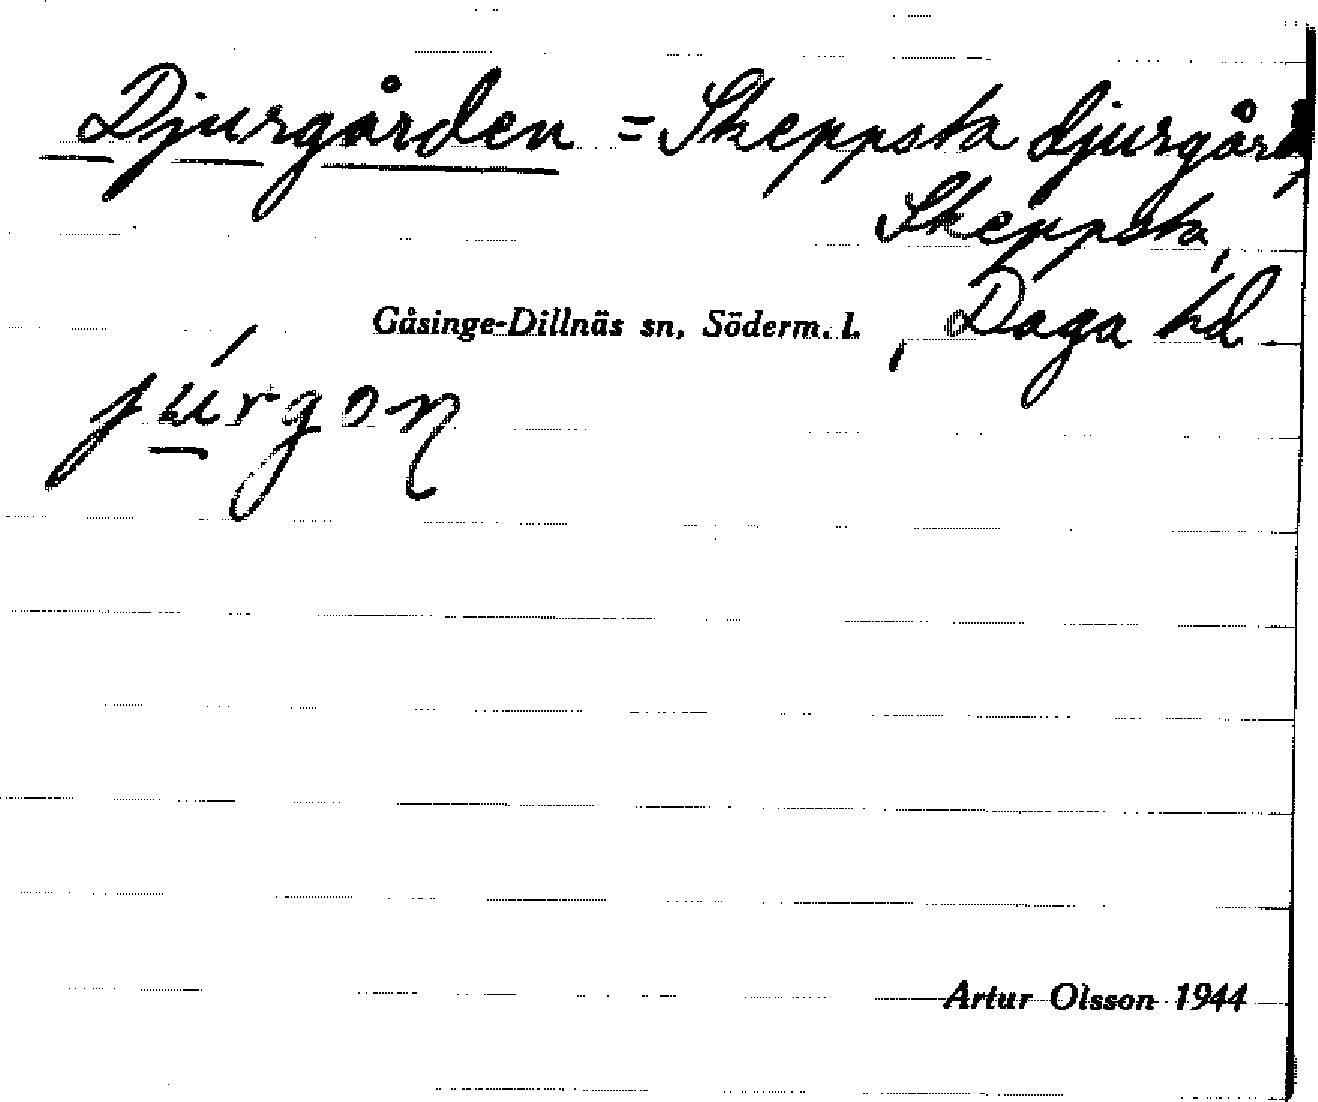 Djurgården = Skeppsta djurgård,
Skeppsta,
Gåsinge-Dillnäs sn, Söderm. l. , Daga hd
júrgon
Artur Olsson 1944